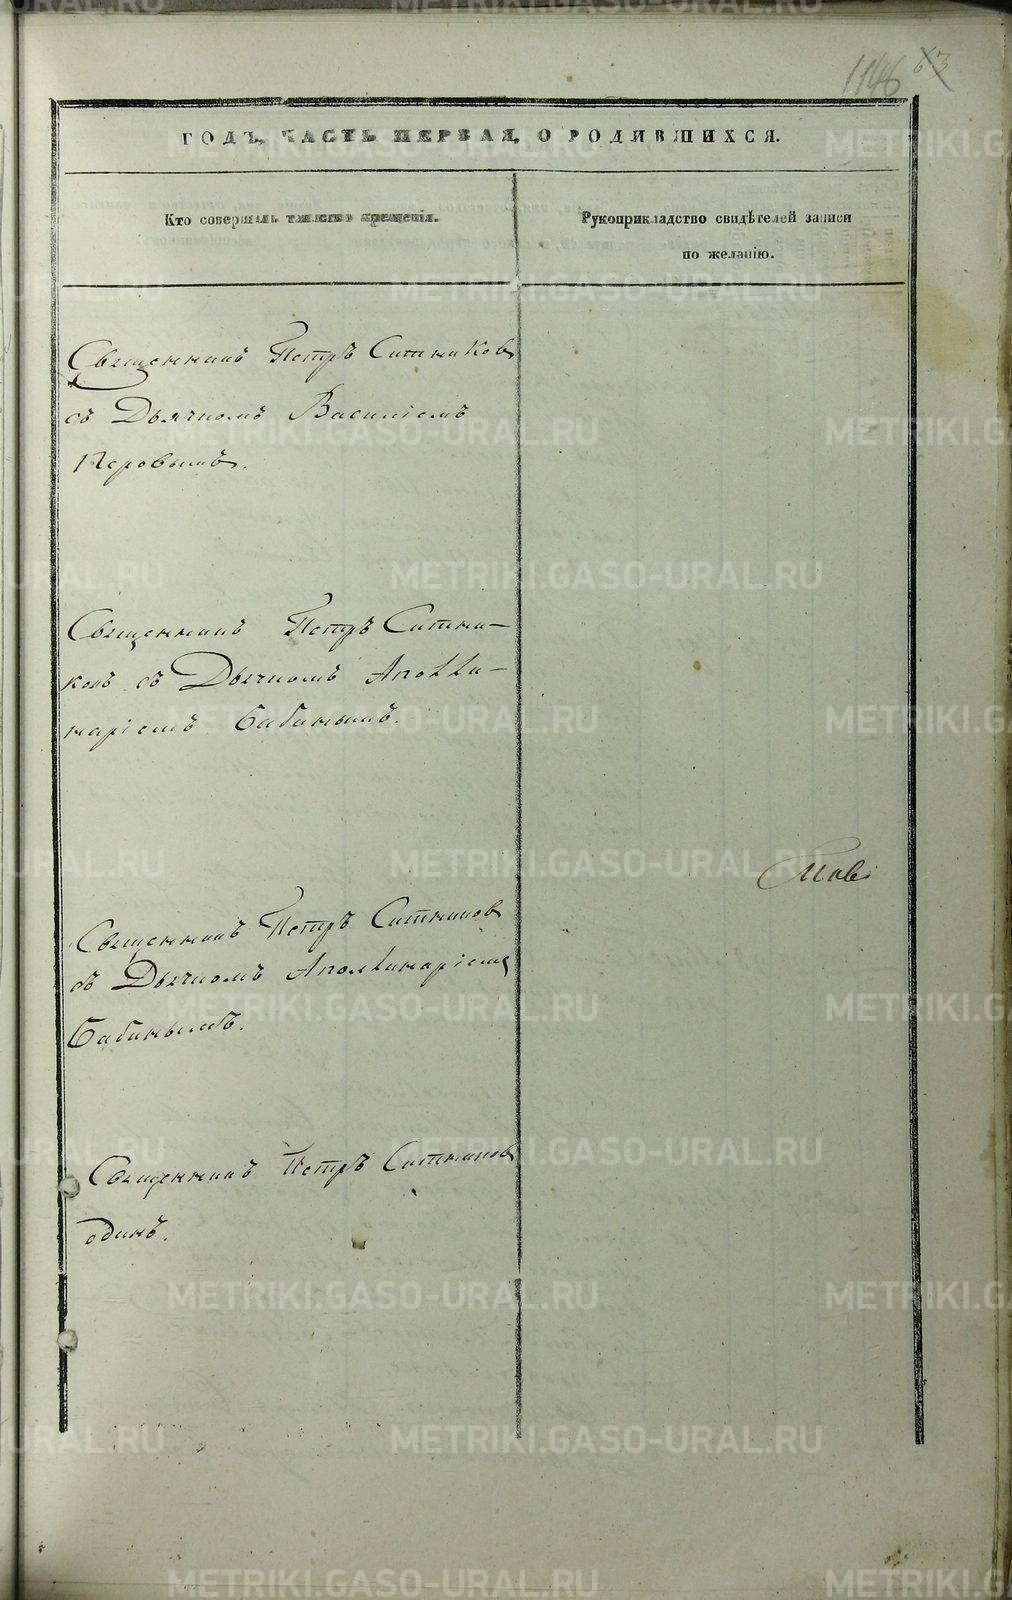 1146 63
ГОДЪ, ЧАСТЬ ПЕРВАЯ, О РОДИВШИХСЯ.
Кто совершалъ таинство крещенія.
Рукоприкладство свидѣтелей записи
по желанію.
Священникъ Петръ Ситниковъ
съ Дьячкомъ Василіемъ
Перовымъ.
Священникъ Петръ Ситни-
ковъ съ Дьячкомъ Аполли-
наріемъ Бабинымъ.
Священникъ Петръ Ситниковъ
съ Дьячкомъ Аполлинаріемъ
Бабинымъ.
Священникъ Петръ Ситниковъ
одинъ.
METRIKI.GASO-URAL.RU